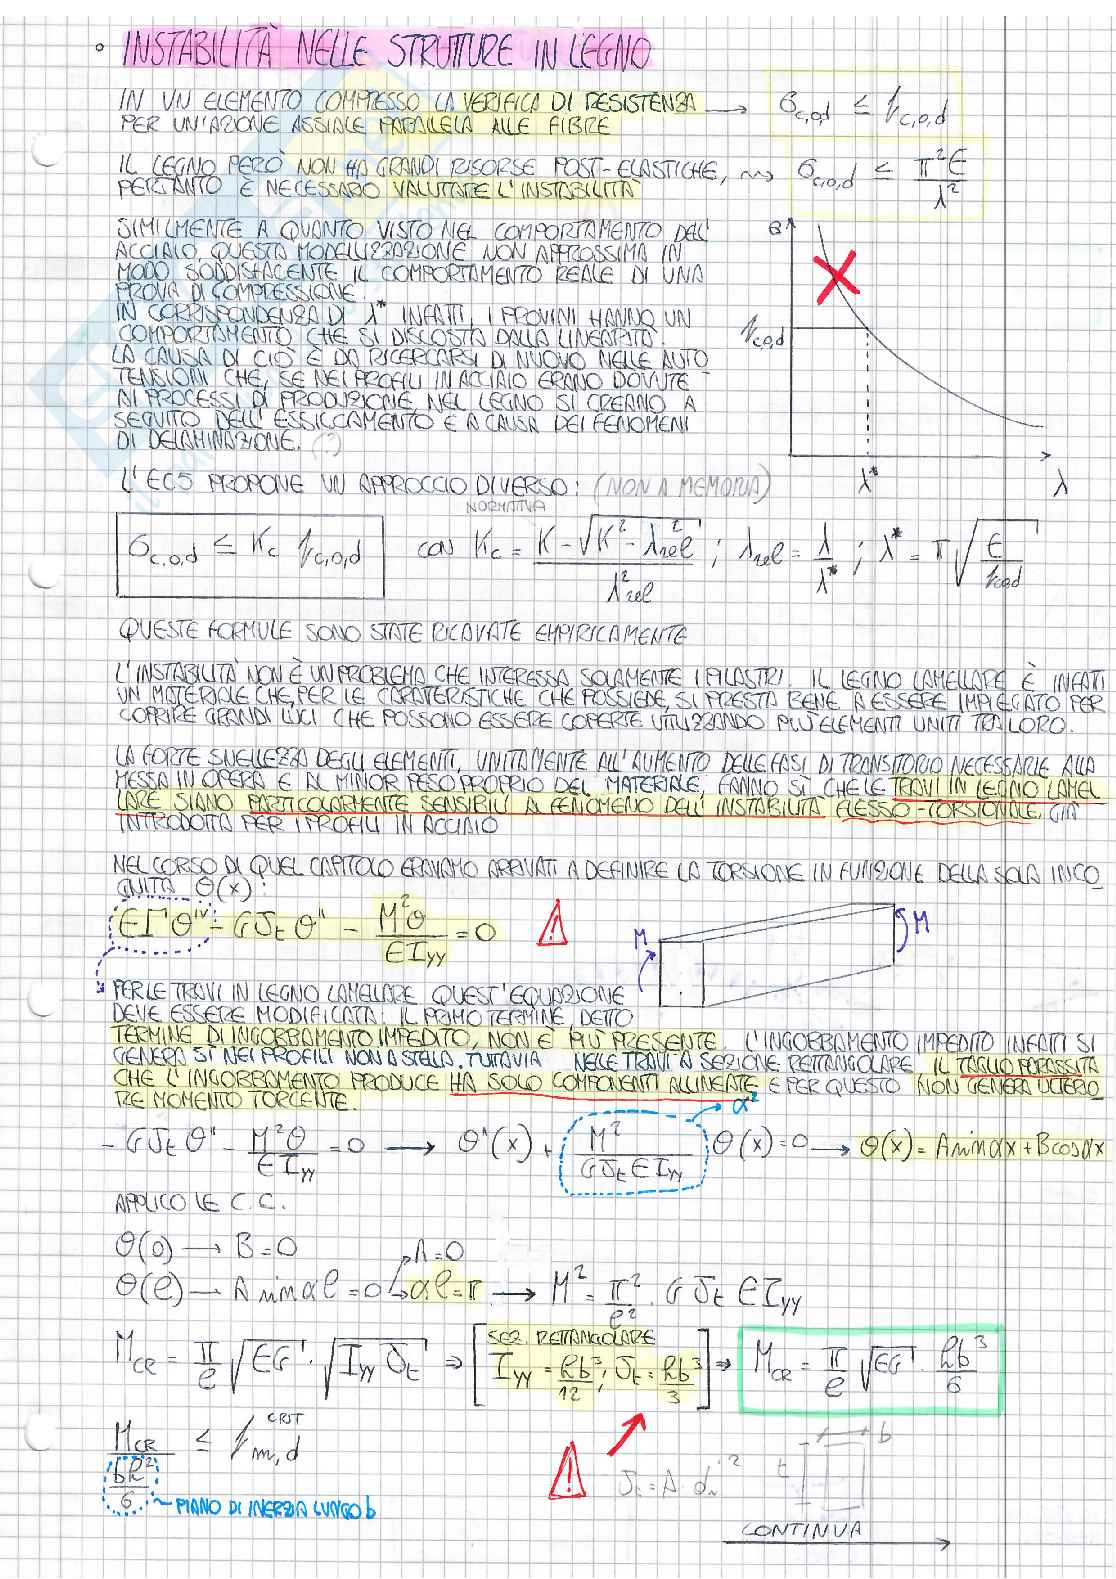 ° INSTABILITÀ NELLE STRUTTURE IN LEGNO
IN UN ELEMENTO COMPRESSO LA VERIFICA DI RESISTENZA → σc,o,d ≤ fc,o,d
PER UN'AZIONE ASSIALE PARALLELA ALLE FIBRE
IL LEGNO PERÒ NON HA GRANDI RISORSE POST-ELASTICHE, ⇝ σc,o,d ≤ π²E/λ²
PERTANTO È NECESSARIO VALUTARE L'INSTABILITÀ
SIMILMENTE A QUANTO VISTO NEL COMPORTAMENTO DELL'
ACCIAIO, QUESTA MODELLIZZAZIONE NON APPROSSIMA IN
MODO SODDISFACENTE IL COMPORTAMENTO REALE DI UNA
PROVA DI COMPRESSIONE.
IN CORRISPONDENZA DI λ* INFATTI, I PROVINI HANNO UN
COMPORTAMENTO CHE SI DISCOSTA DALLA LINEARITÀ.
LA CAUSA DI CIÒ È DA RICERCARSI DI NUOVO NELLE AUTO
TENSIONI CHE, SE NEI PROFILI IN ACCIAIO ERANO DOVUTE
AI PROCESSI DI PRODUZIONE NEL LEGNO SI CREANO A
SEGUITO DELL'ESSICCAMENTO E A CAUSA DEI FENOMENI
DI DELAMINAZIONE. (?)
σ
fc,o,d
λ*
λ
L'EC5 PROPONE UN APPROCCIO DIVERSO: (NON A MEMORIA)
NORMATIVA
σc,o,d ≤ Kc fc,o,d CON Kc = K-√K²-λ²rel / λ²rel ; λrel = λ/λ* ; λ* = π√E/fc,o,d
QUESTE FORMULE SONO STATE RICAVATE EMPIRICAMENTE
L'INSTABILITÀ NON È UN PROBLEMA CHE INTERESSA SOLAMENTE I PILASTRI. IL LEGNO LAMELLARE È INFATI
UN MATERIALE CHE, PER LE CARATERISTICHE CHE POSSIEDE, SI PRESTA BENE A ESSERE IMPIEGATO PER
COPRIRE GRANDI LUCI CHE POSSONO ESSERE COPERTE UTILIZZANDO PIÙ ELEMENTI UNITI TRA LORO.
LA FORTE SNELLEZZA DEGLI ELEMENTI, UNITAMENTE ALL'AUMENTO DELLE FASI DI TRANSITORIO NECESSARIE ALLA
MESSA IN OPERA E AL MINOR PESO PROPRIO DEL MATERIALE, FANNO SÌ CHE LE TRAVI IN LEGNO LAMEL
LARE SIANO PARTICOLARMENTE SENSIBILI AL FENOMENO DELL'INSTABILITÀ FLESSO-TORSIONALE, GIÀ
INTRODOTTA PER I PROFILI IN ACCIAIO
NEL CORSO DI QUEL CAPITOLO ERAVAMO ARRIVATI A DEFINIRE LA TORSIONE IN FUNZIONE DELLA SOLA INCO
GNITA θ(x):
EΓθᴵⱽ - GJt θ" - M²θ/EIyy = 0
M
M
PER LE TRAVI IN LEGNO LAMELLARE QUEST'EQUAZIONE
DEVE ESSERE MODIFICATA: IL PRIMO TERMINE, DETTO
TERMINE DI INGOBBAMENTO IMPEDITO, NON È PIÙ PRESENTE. L'INGOBBAMENTO IMPEDITO INFATTI SI
GENERA SÌ NEI PROFILI NON A STELLA. TUTTAVIA NELLE TRAVI A SEZIONE RETTANGOLARE IL TAGLIO PARASSITA
CHE L'INGOBBAMENTO PRODUCE HA SOLO COMPONENTI ALLINEATE E PER QUESTO NON GENERA ULTERIO
RE MOMENTO TORCENTE.
α²
- GJt θ" - M²θ/EIyy = 0 → θ"(x) + M²/GJt EIyy θ(x) = 0 → θ(x) = A sin αx + B cos αx
APPLICO LE C.C.
θ(0) → B = 0
A = 0
θ(ℓ) → A sin αℓ = 0 → αℓ = π → M² = π²/ℓ² · GJt EIyy
MCR = π/ℓ √EG · √Iyy Jt ⇒ [SEZ. RETTANGOLARE Iyy = hb³/12 ; Jt = hb³/3] ⇒ MCR = π/ℓ √EG · hb³/6
MCR / bh²/6 ≤ f CRIT m,d
PIANO DI INERZIA LUNGO b
b
CONTINUA